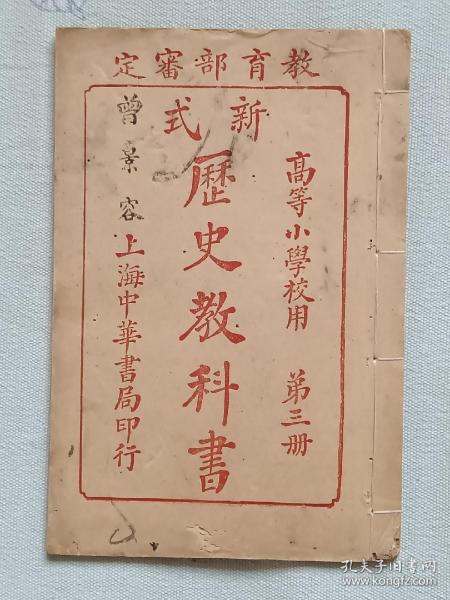 教育部審定
高等小學校用 第三册
新式
歷史教科書
曾景容
上海中華書局印行
孔夫子旧书网
www.kongfz.com